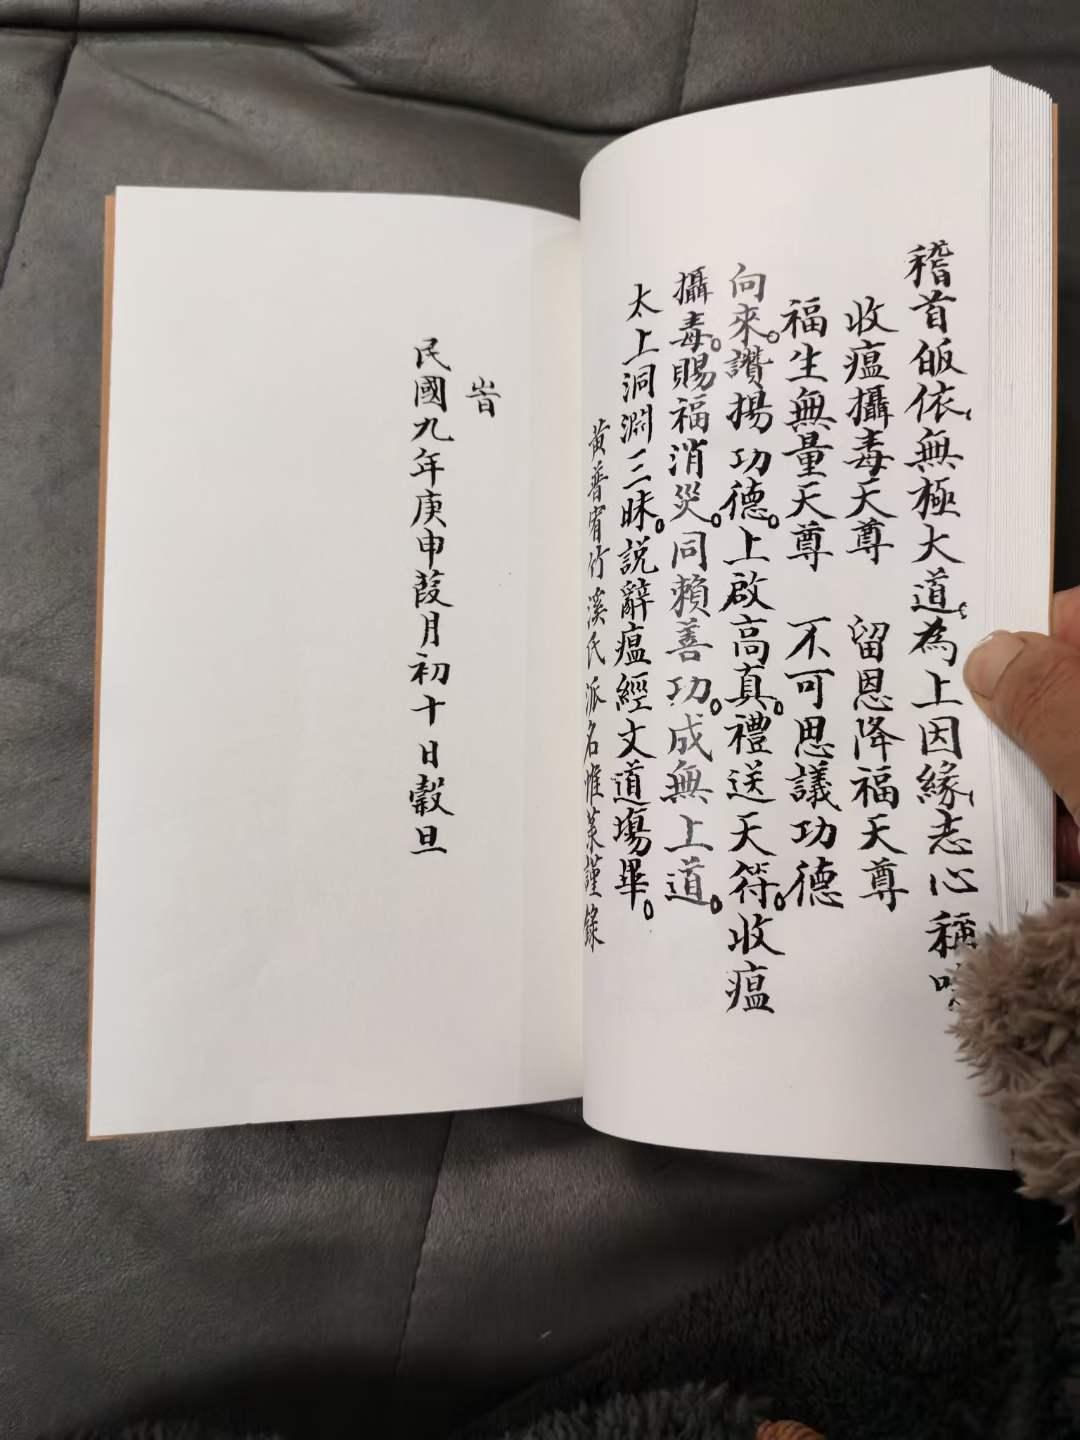 稽首皈依無極大道為上因緣志心稱
收瘟攝毒天尊　留恩降福天尊
福生無量天尊　不可思議功德
向來讚揚功德上啟高真禮送天符收瘟
攝毒賜福消災同賴善功成無上道
太上洞淵三昧説辭瘟經文道塲畢
黃普宥竹溪氏派名惟菉謹錄
旹
民國九年庚申葭月初十日穀旦